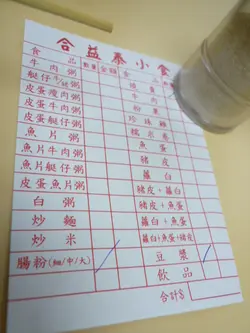 合益泰小食
食品 數量 金額 食品
牛肉粥 燒賣
艇仔粥 牛肉
皮蛋瘦肉粥 粉
皮蛋牛肉粥 珍珠雞
皮蛋艇仔粥 糯米卷
魚片粥 魚蛋
魚片牛肉粥 豬皮
魚片艇仔粥 蘿白
皮蛋魚片粥 豬皮+蘿白
白粥 豬皮+魚蛋
炒麵 蘿白+魚蛋
炒米 蘿白+魚蛋+豬皮
腸粉(細/中/大) 豆漿
飲品
合計$